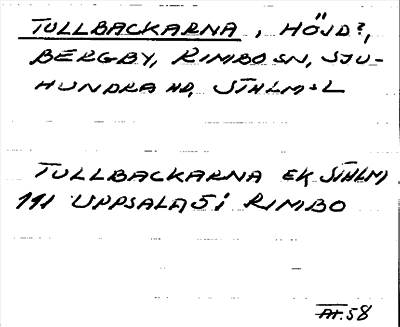 TULLBACKARNA, HÖJD?,
BERGBY, RIMBO SN, SJU-
HUNDRA HD, STHLMS L
TULLBACKARNA EK STHLM
111 UPPSALA 5 i RIMBO
AH. 58